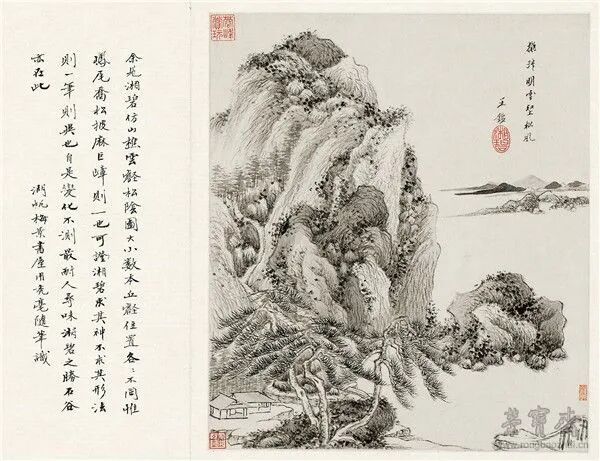 擬叔明雲壑松風
王鑑
余見湘碧仿山樵雲壑松陰圖大小數本丘壑位置各々不同惟
尾喬松披麻巨嶂則一也可證湘碧求其神不求其形法
則一筆則異也自是變化不測最耐人尋味湘碧之勝石谷
亦在此
湖帆梅景書屋用毫隨筆識
荣宝斋
www.rongbaozhai.cn